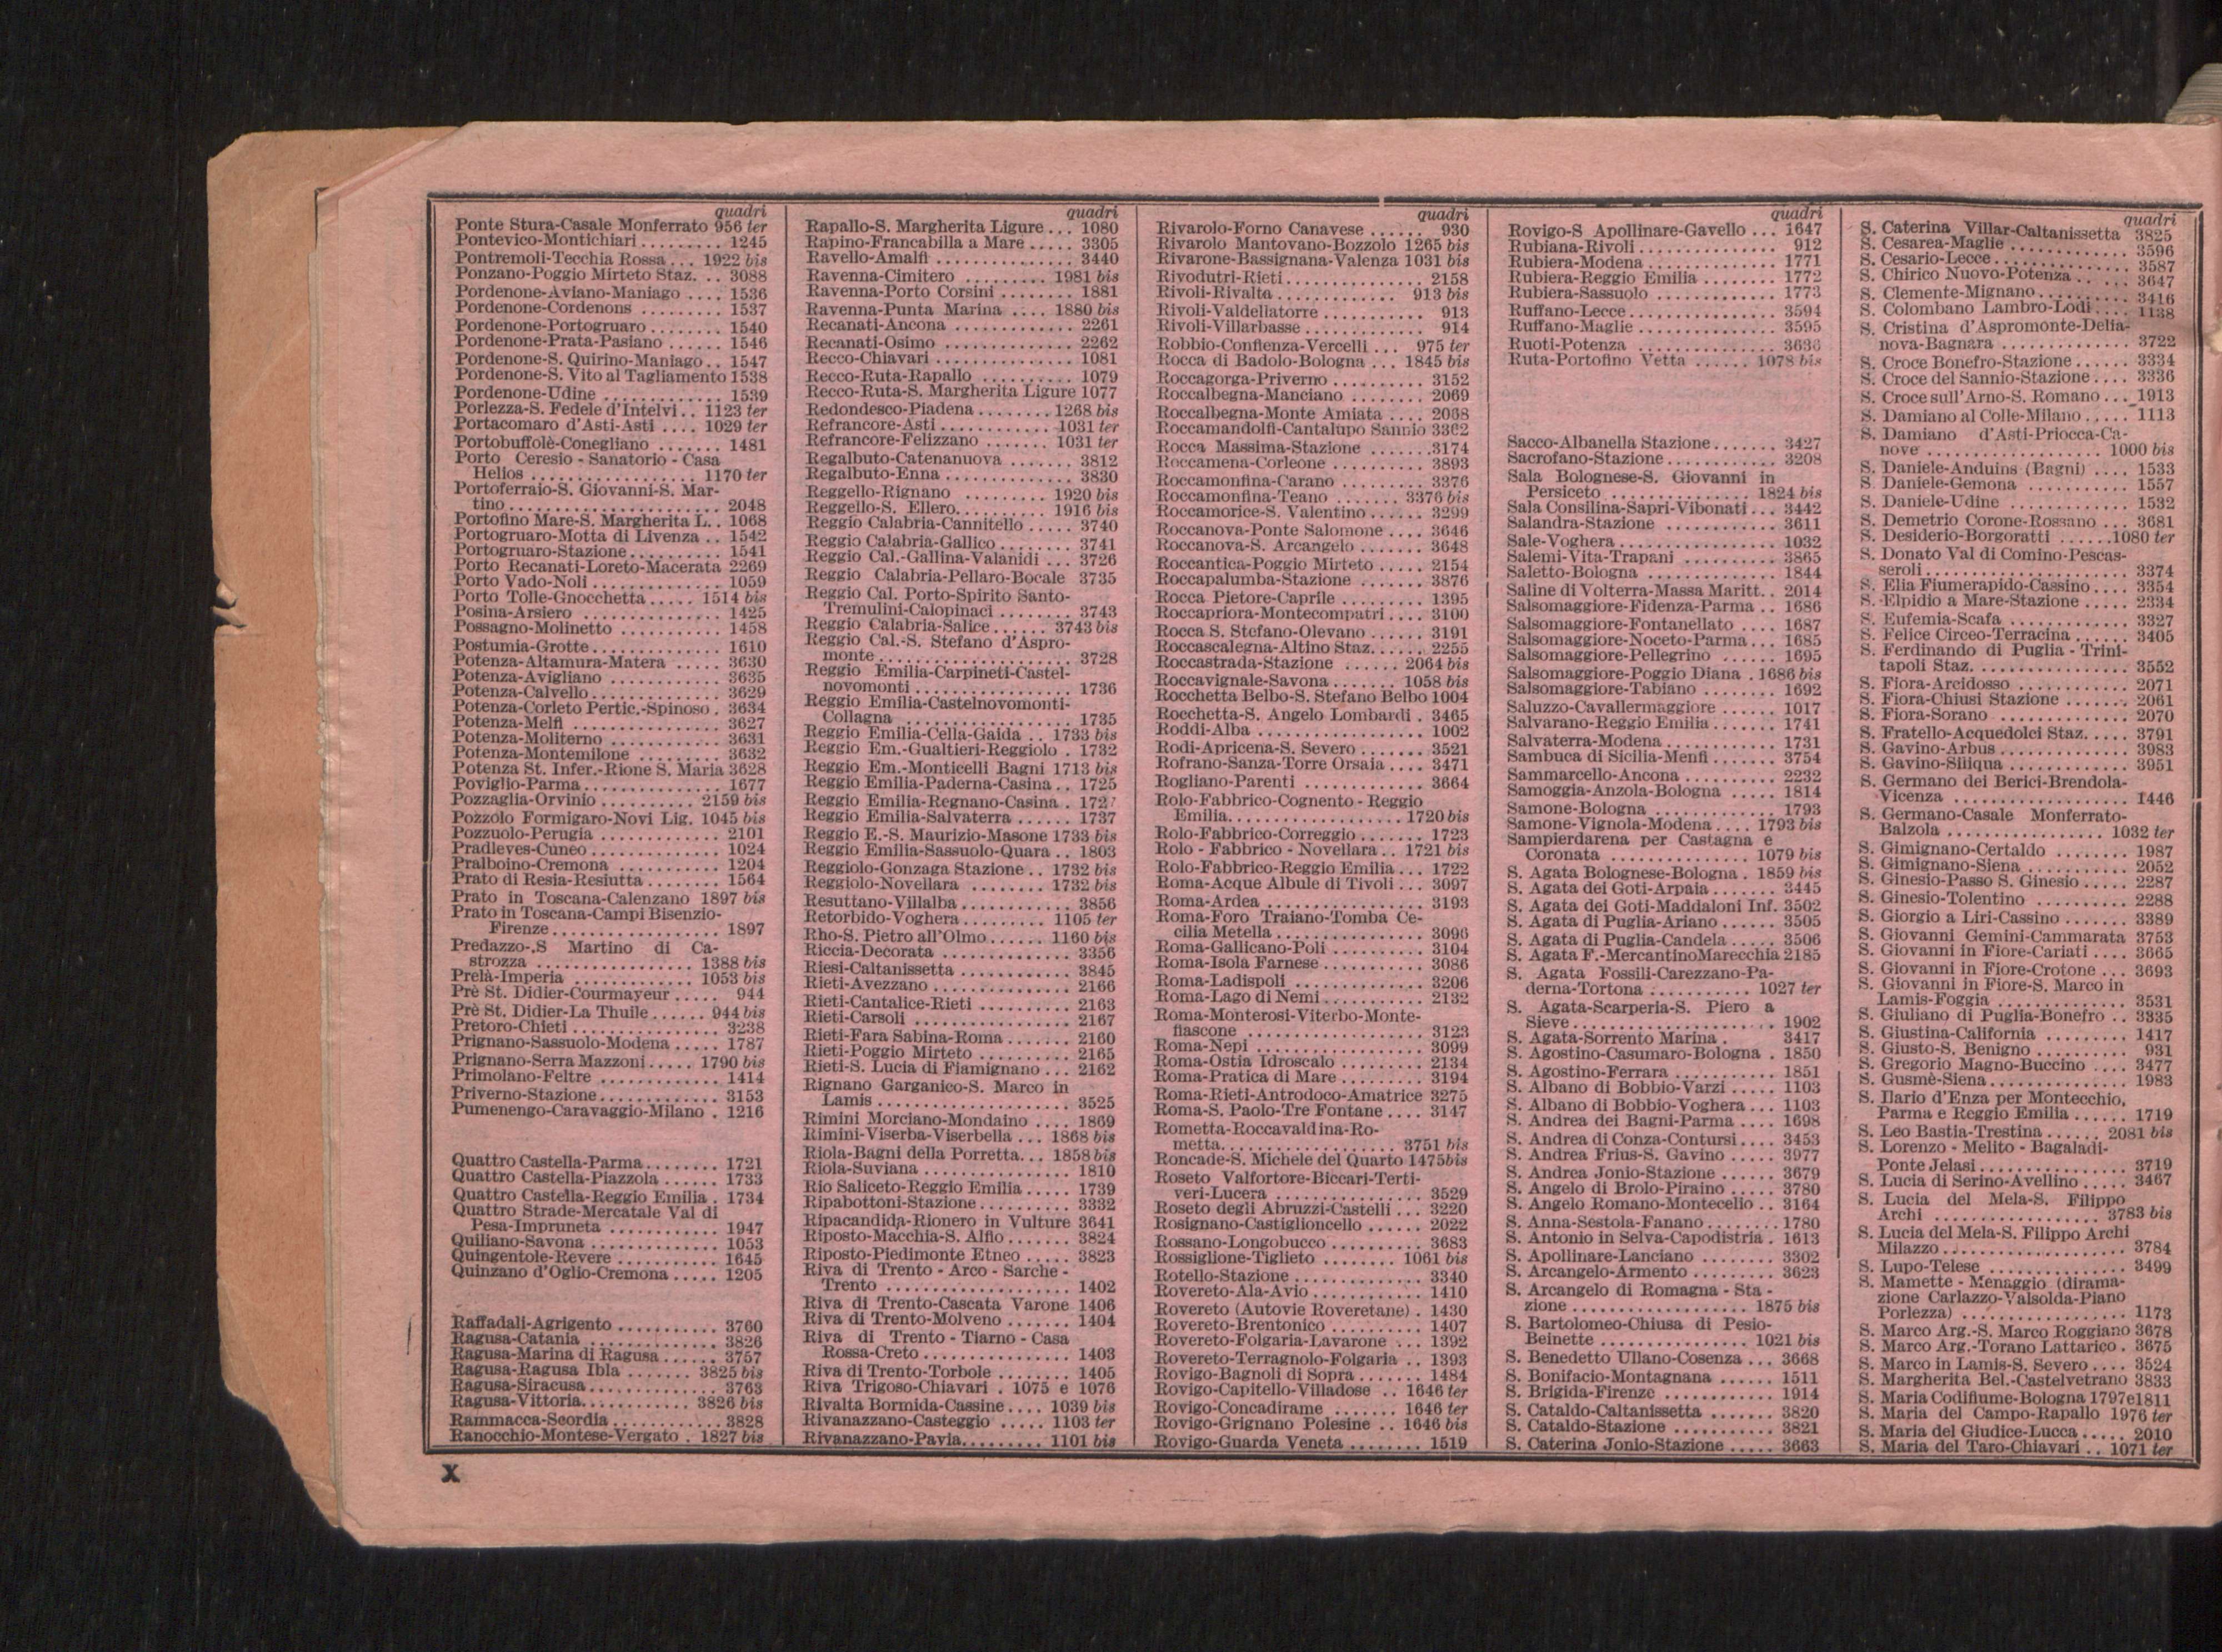 quadri
Ponte Stura-Casale Monferrato 956 ter
Pontevico-Montichiari ......... 1245
Pontremoli-Tecchia Rossa ... 1922 bis
Ponzano-Poggio Mirteto Staz. .. 3088
Pordenone-Aviano-Maniago .... 1536
Pordenone-Cordenons ......... 1537
Pordenone-Portogruaro ........ 1540
Pordenone-Prata-Pasiano ...... 1546
Pordenone-S. Quirino-Maniago.. 1547
Pordenone-S. Vito al Tagliamento 1538
Pordenone-Udine ............. 1539
Porlezza-S. Fedele d'Intelvi.. 1123 ter
Portacomaro d'Asti-Asti .... 1029 ter
Portobuffolè-Conegliano ....... 1481
Porto Ceresio - Sanatorio - Casa
Helios .................. 1170 ter
Portoferraio-S. Giovanni-S. Mar-
tino ....................... 2048
Portofino Mare-S. Margherita L.. 1068
Portogruaro-Motta di Livenza .. 1542
Portogruaro-Stazione.......... 1541
Porto Recanati-Loreto-Macerata 2269
Porto Vado-Noli .............. 1059
Porto Tolle-Gnocchetta ..... 1514 bis
Posina-Arsiero ............... 1425
Possagno-Molinetto ........... 1458
Postumia-Grotte .............. 1610
Potenza-Altamura-Matera ..... 3630
Potenza-Avigliano ............ 3635
Potenza-Calvello.............. 3629
Potenza-Corleto Pertic.-Spinoso . 3634
Potenza-Melfi ................ 3627
Potenza-Moliterno ............ 3631
Potenza-Montemilone ......... 3632
Potenza St. Infer.-Rione S. Maria 3628
Poviglio-Parma ............... 1677
Pozzaglia-Orvinio .......... 2159 bis
Pozzolo Formigaro-Novi Lig. 1045 bis
Pozzuolo-Perugia ............. 2101
Pradleves-Cuneo .............. 1024
Pralboino-Cremona ............ 1204
Prato di Resia-Resiutta ........ 1564
Prato in Toscana-Calenzano 1897 bis
Prato in Toscana-Campi Bisenzio-
Firenze ................... 1897
Predazzo-.S Martino di Ca-
strozza ................. 1388 bis
Prelà-Imperia ............. 1053 bis
Prè St. Didier-Courmayeur ..... 944
Prè St. Didier-La Thuile ...... 944 bis
Pretoro-Chieti ................ 3238
Prignano-Sassuolo-Modena ..... 1787
Prignano-Serra Mazzoni ..... 1790 bis
Primolano-Feltre ............. 1414
Priverno-Stazione ............. 3153
Pumenengo-Caravaggio-Milano . 1216
Quattro Castella-Parma ........ 1721
Quattro Castella-Piazzola ...... 1733
Quattro Castella-Reggio Emilia . 1734
Quattro Strade-Mercatale Val di
Pesa-Impruneta ............ 1947
Quiliano-Savona .............. 1053
Quingentole-Revere ........... 1645
Quinzano d'Oglio-Cremona ..... 1205
Raffadali-Agrigento ........... 3760
Ragusa-Catania .............. 3826
Ragusa-Marina di Ragusa ...... 3757
Ragusa-Ragusa Ibla ....... 3825 bis
Ragusa-Siracusa .............. 3763
Ragusa-Vittoria............ 3826 bis
Rammacca-Scordia ............ 3828
Ranocchio-Montese-Vergato . 1827 bis
quadri
Rapallo-S. Margherita Ligure ... 1080
Rapino-Francabilla a Mare ..... 3305
Ravello-Amalfi ............... 3440
Ravenna-Cimitero ......... 1981 bis
Ravenna-Porto Corsini ........ 1881
Ravenna-Punta Marina .... 1880 bis
Recanati-Ancona ............. 2261
Recanati-Osimo .............. 2262
Recco-Chiavari ............... 1081
Recco-Ruta-Rapallo .......... 1079
Recco-Ruta-S. Margherita Ligure 1077
Redondesco-Piadena ........ 1268 bis
Refrancore-Asti ............ 1031 ter
Refrancore-Felizzano ....... 1031 ter
Regalbuto-Catenanuova ....... 3812
Regalbuto-Enna .............. 3830
Reggello-Rignano ......... 1920 bis
Reggello-S. Ellero.......... 1916 bis
Reggio Calabria-Cannitello ..... 3740
Reggio Calabria-Gallico ........ 3741
Reggio Cal.-Gallina-Valanidi ... 3726
Reggio Calabria-Pellaro-Bocale 3735
Reggio Cal. Porto-Spirito Santo-
Tremulini-Calopinaci ........ 3743
Reggio Calabria-Salice ...... 3743 bis
Reggio Cal.-S. Stefano d'Aspro-
monte ..................... 3728
Reggio Emilia-Carpineti-Castel-
novomonti ................. 1736
Reggio Emilia-Castelnovomonti-
Collagna .................. 1735
Reggio Emilia-Cella-Gaida .. 1733 bis
Reggio Em.-Gualtieri-Reggiolo . 1732
Reggio Em.-Monticelli Bagni 1713 bis
Reggio Emilia-Paderna-Casina .. 1725
Reggio Emilia-Regnano-Casina .
Reggio Emilia-Salvaterra ...... 1737
Reggio E.-S. Maurizio-Masone 1733 bis
Reggio Emilia-Sassuolo-Quara .. 1803
Reggiolo-Gonzaga Stazione .. 1732 bis
Reggiolo-Novellara ........ 1732 bis
Resuttano-Villalba ............ 3856
Retorbido-Voghera ......... 1105 ter
Rho-S. Pietro all'Olmo ...... 1160 bis
Riccia-Decorata .............. 3356
Riesi-Caltanissetta ............ 3845
Rieti-Avezzano ............... 2166
Rieti-Cantalice-Rieti .......... 2163
Rieti-Carsoli ................. 2167
Rieti-Fara Sabina-Roma ....... 2160
Rieti-Poggio Mirteto .......... 2165
Rieti-S. Lucia di Fiamignano ... 2162
Rignano Garganico-S. Marco in
Lamis ..................... 3525
Rimini Morciano-Mondaino .... 1869
Rimini-Viserba-Viserbella ... 1868 bis
Riola-Bagni della Porretta... 1858 bis
Riola-Suviana ................ 1810
Rio Saliceto-Reggio Emilia ..... 1739
Ripabottoni-Stazione .......... 3332
Ripacandida-Rionero in Vulture 3641
Riposto-Macchia-S. Alfio ....... 3824
Riposto-Piedimonte Etneo ..... 3823
Riva di Trento - Arco - Sarche -
Trento .................... 1402
Riva di Trento-Cascata Varone 1406
Riva di Trento-Molveno ....... 1404
Riva di Trento - Tiarno - Casa
Rossa-Creto ................ 1403
Riva di Trento-Torbole ........ 1405
Riva Trigoso-Chiavari . 1075 e 1076
Rivalta Bormida-Cassine .... 1039 bis
Rivanazzano-Casteggio ..... 1103 ter
Rivanazzano-Pavia......... 1101 bis
quadri
Rivarolo-Forno Canavese ...... 930
Rivarolo Mantovano-Bozzolo 1265 bis
Rivarone-Bassignana-Valenza 1031 bis
Rivodutri-Rieti ............... 2158
Rivoli-Rivalta ............. 913 bis
Rivoli-Valdellatorre ........... 913
Rivoli-Villarbasse ............. 914
Robbio-Confienza-Vercelli ... 975 ter
Rocca di Badolo-Bologna ... 1845 bis
Roccagorga-Priverno .......... 3152
Roccalbegna-Manciano ........ 2069
Roccalbegna-Monte Amiata .... 2068
Roccamandolfi-Cantalupo Sannio 3302
Rocca Massima-Stazione .......3174
Roccamena-Corleone .......... 3893
Roccamonfina-Carano ......... 3376
Roccamonfina-Teano ....... 3376 bis
Roccamorice-S. Valentino ...... 3299
Roccanova-Ponte Salomone .... 3646
Roccanova-S. Arcangelo ....... 3648
Roccantica-Poggio Mirteto ..... 2154
Roccapalumba-Stazione ....... 3876
Rocca Pietore-Caprile ......... 1395
Roccapriora-Montecompatri .... 3100
Rocca S. Stefano-Olevano ...... 3191
Roccascalegna-Altino Staz. ..... 2255
Roccastrada-Stazione ...... 2064 bis
Roccavignale-Savona ....... 1058 bis
Rocchetta Belbo-S. Stefano Belbo 1004
Rocchetta-S. Angelo Lombardi . 3465
Roddi-Alba .................. 1002
Rodi-Apricena-S. Severo ....... 3521
Rofrano-Sanza-Torre Orsaia .... 3471
Rogliano-Parenti ............. 3664
Rolo-Fabbrico-Cognento - Reggio
Emilia................... 1720 bis
Rolo-Fabbrico-Correggio ....... 1723
Rolo - Fabbrico - Novellara .. 1721 bis
Rolo-Fabbrico-Reggio Emilia ... 1722
Roma-Acque Albule di Tivoli ... 3097
Roma-Ardea ................. 3193
Roma-Foro Traiano-Tomba Ce-
cilia Metella ................ 3096
Roma-Gallicano-Poli .......... 3104
Roma-Isola Farnese ........... 3086
Roma-Ladispoli .............. 3206
Roma-Lago di Nemi ........... 2132
Roma-Monterosi-Viterbo-Monte-
fiascone .................... 3123
Roma-Nepi .................. 3099
Roma-Ostia Idroscalo ......... 2134
Roma-Pratica di Mare ......... 3194
Roma-Rieti-Antrodoco-Amatrice 3275
Roma-S. Paolo-Tre Fontane .... 3147
Rometta-Roccavaldina-Ro-
metta.................... 3751 bis
Roncade-S. Michele del Quarto 1475bis
Roseto Valfortore-Biccari-Terti-
veri-Lucera ................ 3529
Roseto degli Abruzzi-Castelli ... 3220
Rosignano-Castiglioncello ...... 2022
Rossano-Longobucco .......... 3683
Rossiglione-Tiglieto ........ 1061 bis
Rotello-Stazione .............. 3340
Rovereto-Ala-Avio ............ 1410
Rovereto (Autovie Roveretane) . 1430
Rovereto-Brentonico .......... 1407
Rovereto-Folgaria-Lavarone ... 1392
Rovereto-Terragnolo-Folgaria .. 1393
Rovigo-Bagnoli di Sopra ....... 1484
Rovigo-Capitello-Villadose .. 1646 ter
Rovigo-Concadirame ....... 1646 ter
Rovigo-Grignano Polesine .. 1646 bis
Rovigo-Guarda Veneta ........ 1519
quadri
Rovigo-S Apollinare-Gavello ... 1647
Rubiana-Rivoli ............... 912
Rubiera-Modena .............. 1771
Rubiera-Reggio Emilia ........ 1772
Rubiera-Sassuolo ............. 1773
Ruffano-Lecce ................ 3594
Ruffano-Maglie ............... 3595
Ruoti-Potenza ................ 3636
Ruta-Portofino Vetta ...... 1078 bis
Sacco-Albanella Stazione ....... 3427
Sacrofano-Stazione ............ 3208
Sala Bolognese-S. Giovanni in
Persiceto ................ 1824 bis
Sala Consilina-Sapri-Vibonati ... 3442
Salandra-Stazione ............ 3611
Sale-Voghera ................. 1032
Salemi-Vita-Trapani .......... 3865
Saletto-Bologna .............. 1844
Saline di Volterra-Massa Maritt.. 2014
Salsomaggiore-Fidenza-Parma .. 1686
Salsomaggiore-Fontanellato .... 1687
Salsomaggiore-Noceto-Parma ... 1685
Salsomaggiore-Pellegrino ...... 1695
Salsomaggiore-Poggio Diana . 1686 bis
Salsomaggiore-Tabiano ........ 1692
Saluzzo-Cavallermaggiore ...... 1017
Salvarano-Reggio Emilia ....... 1741
Salvaterra-Modena ............ 1731
Sambuca di Sicilia-Menfi ....... 3754
Sammarcello-Ancona .......... 2232
Samoggia-Anzola-Bologna ..... 1814
Samone-Bologna .............. 1793
Samone-Vignola-Modena .... 1793 bis
Sampierdarena per Castagna e
Coronata ............... 1079 bis
S. Agata Bolognese-Bologna . 1859 bis
S. Agata dei Goti-Arpaia ....... 3445
S. Agata dei Goti-Maddaloni Inf. 3502
S. Agata di Puglia-Ariano ...... 3505
S. Agata di Puglia-Candela ..... 3506
S. Agata F.-MercantinoMarecchia 2185
S. Agata Fossili-Carezzano-Pa-
derna-Tortona .......... 1027 ter
S. Agata-Scarperia-S. Piero a
Sieve ...................... 1902
S. Agata-Sorrento Marina . 3417
S. Agostino-Casumaro-Bologna . 1850
S. Agostino-Ferrara ........... 1851
S. Albano di Bobbio-Varzi ..... 1103
S. Albano di Bobbio-Voghera ... 1103
S. Andrea dei Bagni-Parma .... 1698
S. Andrea di Conza-Contursi .... 3453
S. Andrea Frius-S. Gavino ..... 3977
S. Andrea Jonio-Stazione ...... 3679
S. Angelo di Brolo-Piraino ..... 3780
S. Angelo Romano-Montecello .. 3164
S. Anna-Sestola-Fanano ........ 1780
S. Antonio in Selva-Capodistria . 1613
S. Apollinare-Lanciano ........ 3302
S. Arcangelo-Armento ......... 3623
S. Arcangelo di Romagna - Sta -
zione ................... 1875 bis
S. Bartolomeo-Chiusa di Pesio-
Beinette ................ 1021 bis
S. Benedetto Ullano-Cosenza ... 3668
S. Bonifacio-Montagnana ...... 1511
S. Brigida-Firenze ............ 1914
S. Cataldo-Caltanissetta ....... 3820
S. Cataldo-Stazione ........... 3821
S. Caterina Jonio-Stazione ..... 3663
quadri
S. Caterina Villar-Caltanissetta 3825
S. Cesarea-Maglie ............. 3596
S. Cesario-Lecce .............. 3587
S. Chirico Nuovo-Potenza .. ... 3647
S. Clemente-Mignano .......... 3416
S. Colombano Lambro-Lodi .... 1138
S. Cristina d'Aspromonte-Delia-
nova-Bagnara .............. 3722
S. Croce Bonefro-Stazione ...... 3334
S. Croce del Sannio-Stazione .... 3336
S. Croce sull'Arno-S. Romano ... 1913
S. Damiano al Colle-Milano ..... 1113
S. Damiano d'Asti-Priocca-Ca-
nove .................... 1000 bis
S. Daniele-Anduins (Bagni) .... 1533
S. Daniele-Gemona ........... 1557
S. Daniele-Udine ............. 1532
S. Demetrio Corone-Rossano ... 3681
S. Desiderio-Borgoratti ......1080 ter
S. Donato Val di Comino-Pescas-
seroli ...................... 3374
S. Elia Fiumerapido-Cassino .... 3354
S. Elpidio a Mare-Stazione ..... 2334
S. Eufemia-Scafa ............. 3327
S. Felice Circeo-Terracina ...... 3405
S. Ferdinando di Puglia - Trini-
tapoli Staz. ................ 3552
S. Fiora-Arcidosso ............ 2071
S. Fiora-Chiusi Stazione ....... 2061
S. Fiora-Sorano .............. 2070
S. Fratello-Acquedolci Staz. .... 3791
S. Gavino-Arbus .............. 3983
S. Gavino-Siliqua ............. 3951
S. Germano dei Berici-Brendola-
Vicenza ................... 1446
S. Germano-Casale Monferrato-
Balzola ................. 1032 ter
S. Gimignano-Certaldo ........ 1987
S. Gimignano-Siena ........... 2052
S. Ginesio-Passo S. Ginesio ..... 2287
S. Ginesio-Tolentino .......... 2288
S. Giorgio a Liri-Cassino ....... 3389
S. Giovanni Gemini-Cammarata 3753
S. Giovanni in Fiore-Cariati .... 3665
S. Giovanni in Fiore-Crotone ... 3693
S. Giovanni in Fiore-S. Marco in
Lamis-Foggia .............. 3531
S. Giuliano di Puglia-Bonefro .. 3335
S. Giustina-California ......... 1417
S. Giusto-S. Benigno .......... 931
S. Gregorio Magno-Buccino .... 3477
S. Gusmè-Siena ............... 1983
S. Ilario d'Enza per Montecchio,
Parma e Reggio Emilia ...... 1719
S. Leo Bastia-Trestina ...... 2081 bis
S. Lorenzo - Melito - Bagaladi-
Ponte Jelasi ................ 3719
S. Lucia di Serino-Avellino ..... 3467
S. Lucia del Mela-S. Filippo
Archi .................. 3783 bis
S. Lucia del Mela-S. Filippo Archi
Milazzo .................... 3784
S. Lupo-Telese ............... 3499
S. Mamette - Menaggio (dirama-
zione Carlazzo-Valsolda-Piano
Porlezza) .................. 1173
S. Marco Arg.-S. Marco Roggiano 3678
S. Marco Arg.-Torano Lattarico . 3675
S. Marco in Lamis-S. Severo .... 3524
S. Margherita Bel.-Castelvetrano 3833
S. Maria Codifiume-Bologna 1797e1811
S. Maria del Campo-Rapallo 1976 ter
S. Maria del Giudice-Lucca ..... 2010
S. Maria del Taro-Chiavari .. 1071 ter
X